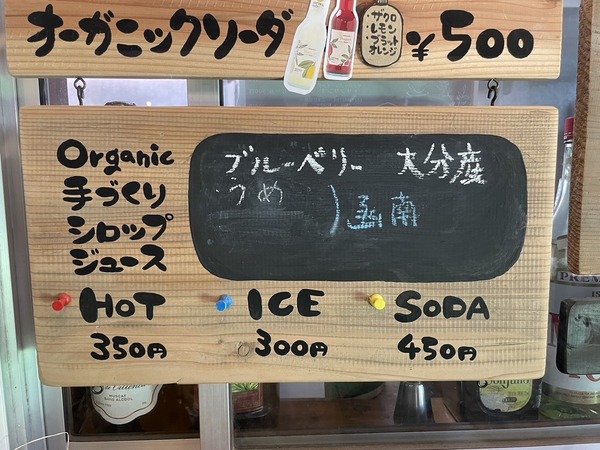 オーガニックソーダ ¥500
ザクロ
レモン
ブラッド
オレンジ
Organic
手づくり
シロップ
ジュース
ブルーベリー 大分産
うめ
函南
HOT ICE SODA
350円 300円 450円
MUSCAT
SANS ALCOOL